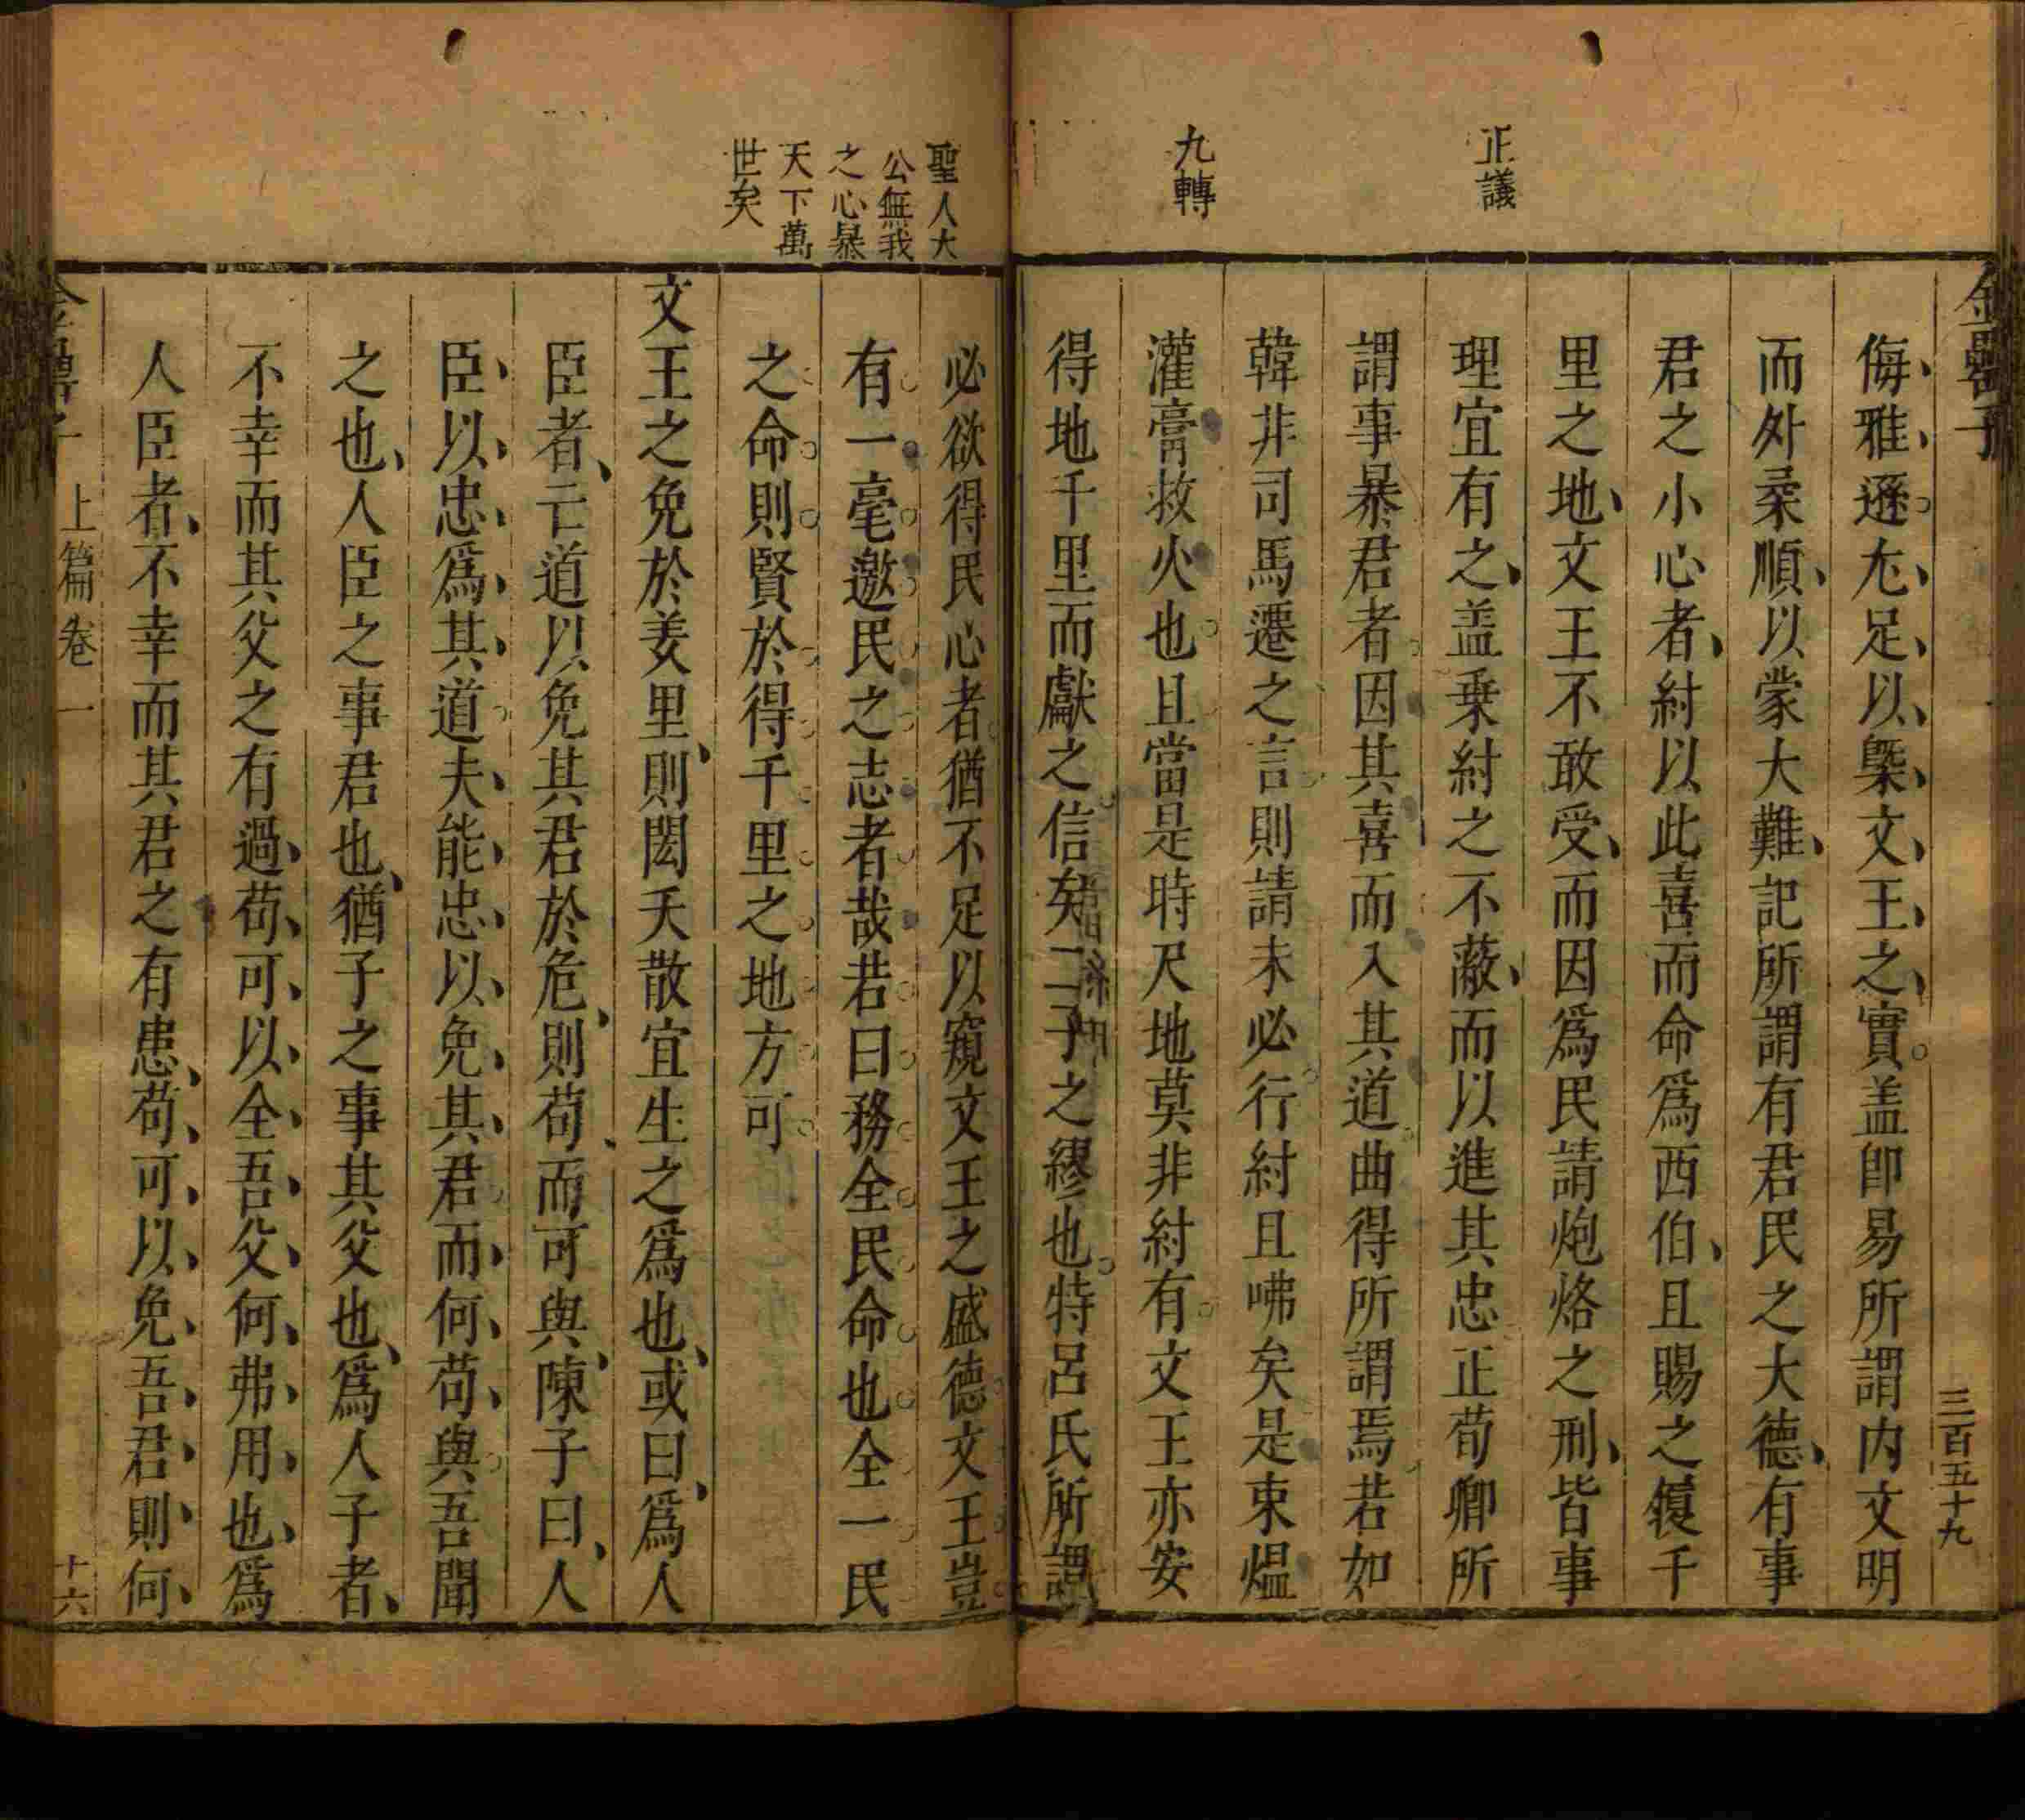 金罍子
三百五十九
正議
九轉
侮雅遜尢足以槩文王之實盖即易所謂内文明
而外柔順以蒙大難記所謂有君民之大德有事
君之小心者紂以此喜而命爲西伯且賜之履千
里之地文王不敢受而因爲民請炮烙之刑皆事
理宜有之盖乗紂之不蔽而以進其忠正荀卿所
謂事暴君者因其喜而入其道曲得所謂焉若如
韓非司馬遷之言則請未必行紂且咈矣是束煴
灌膏救火也且當是時尺地莫非紂有文王亦安
得地千里而獻之信矣二子之繆也特呂氏所謂
聖人大
公無我
之心暴
天下萬
世矣
必欲得民心者猶不足以窺文王之盛德文王豈
有一毫邀民之志者哉若曰務全民命也全一民
之命則賢於得千里之地方可
文王之免於羑里則閎夭散宜生之爲也或曰爲人
臣者亡道以免其君於危則苟而可與陳子曰人
臣以忠爲其道夫能忠以免其君而何苟與吾聞
之也人臣之事君也猶子之事其父也爲人子者
不幸而其父之有過苟可以全吾父何弗用也爲
人臣者不幸而其君之有患苟可以免吾君則何
金罍子 上篇卷一
十六